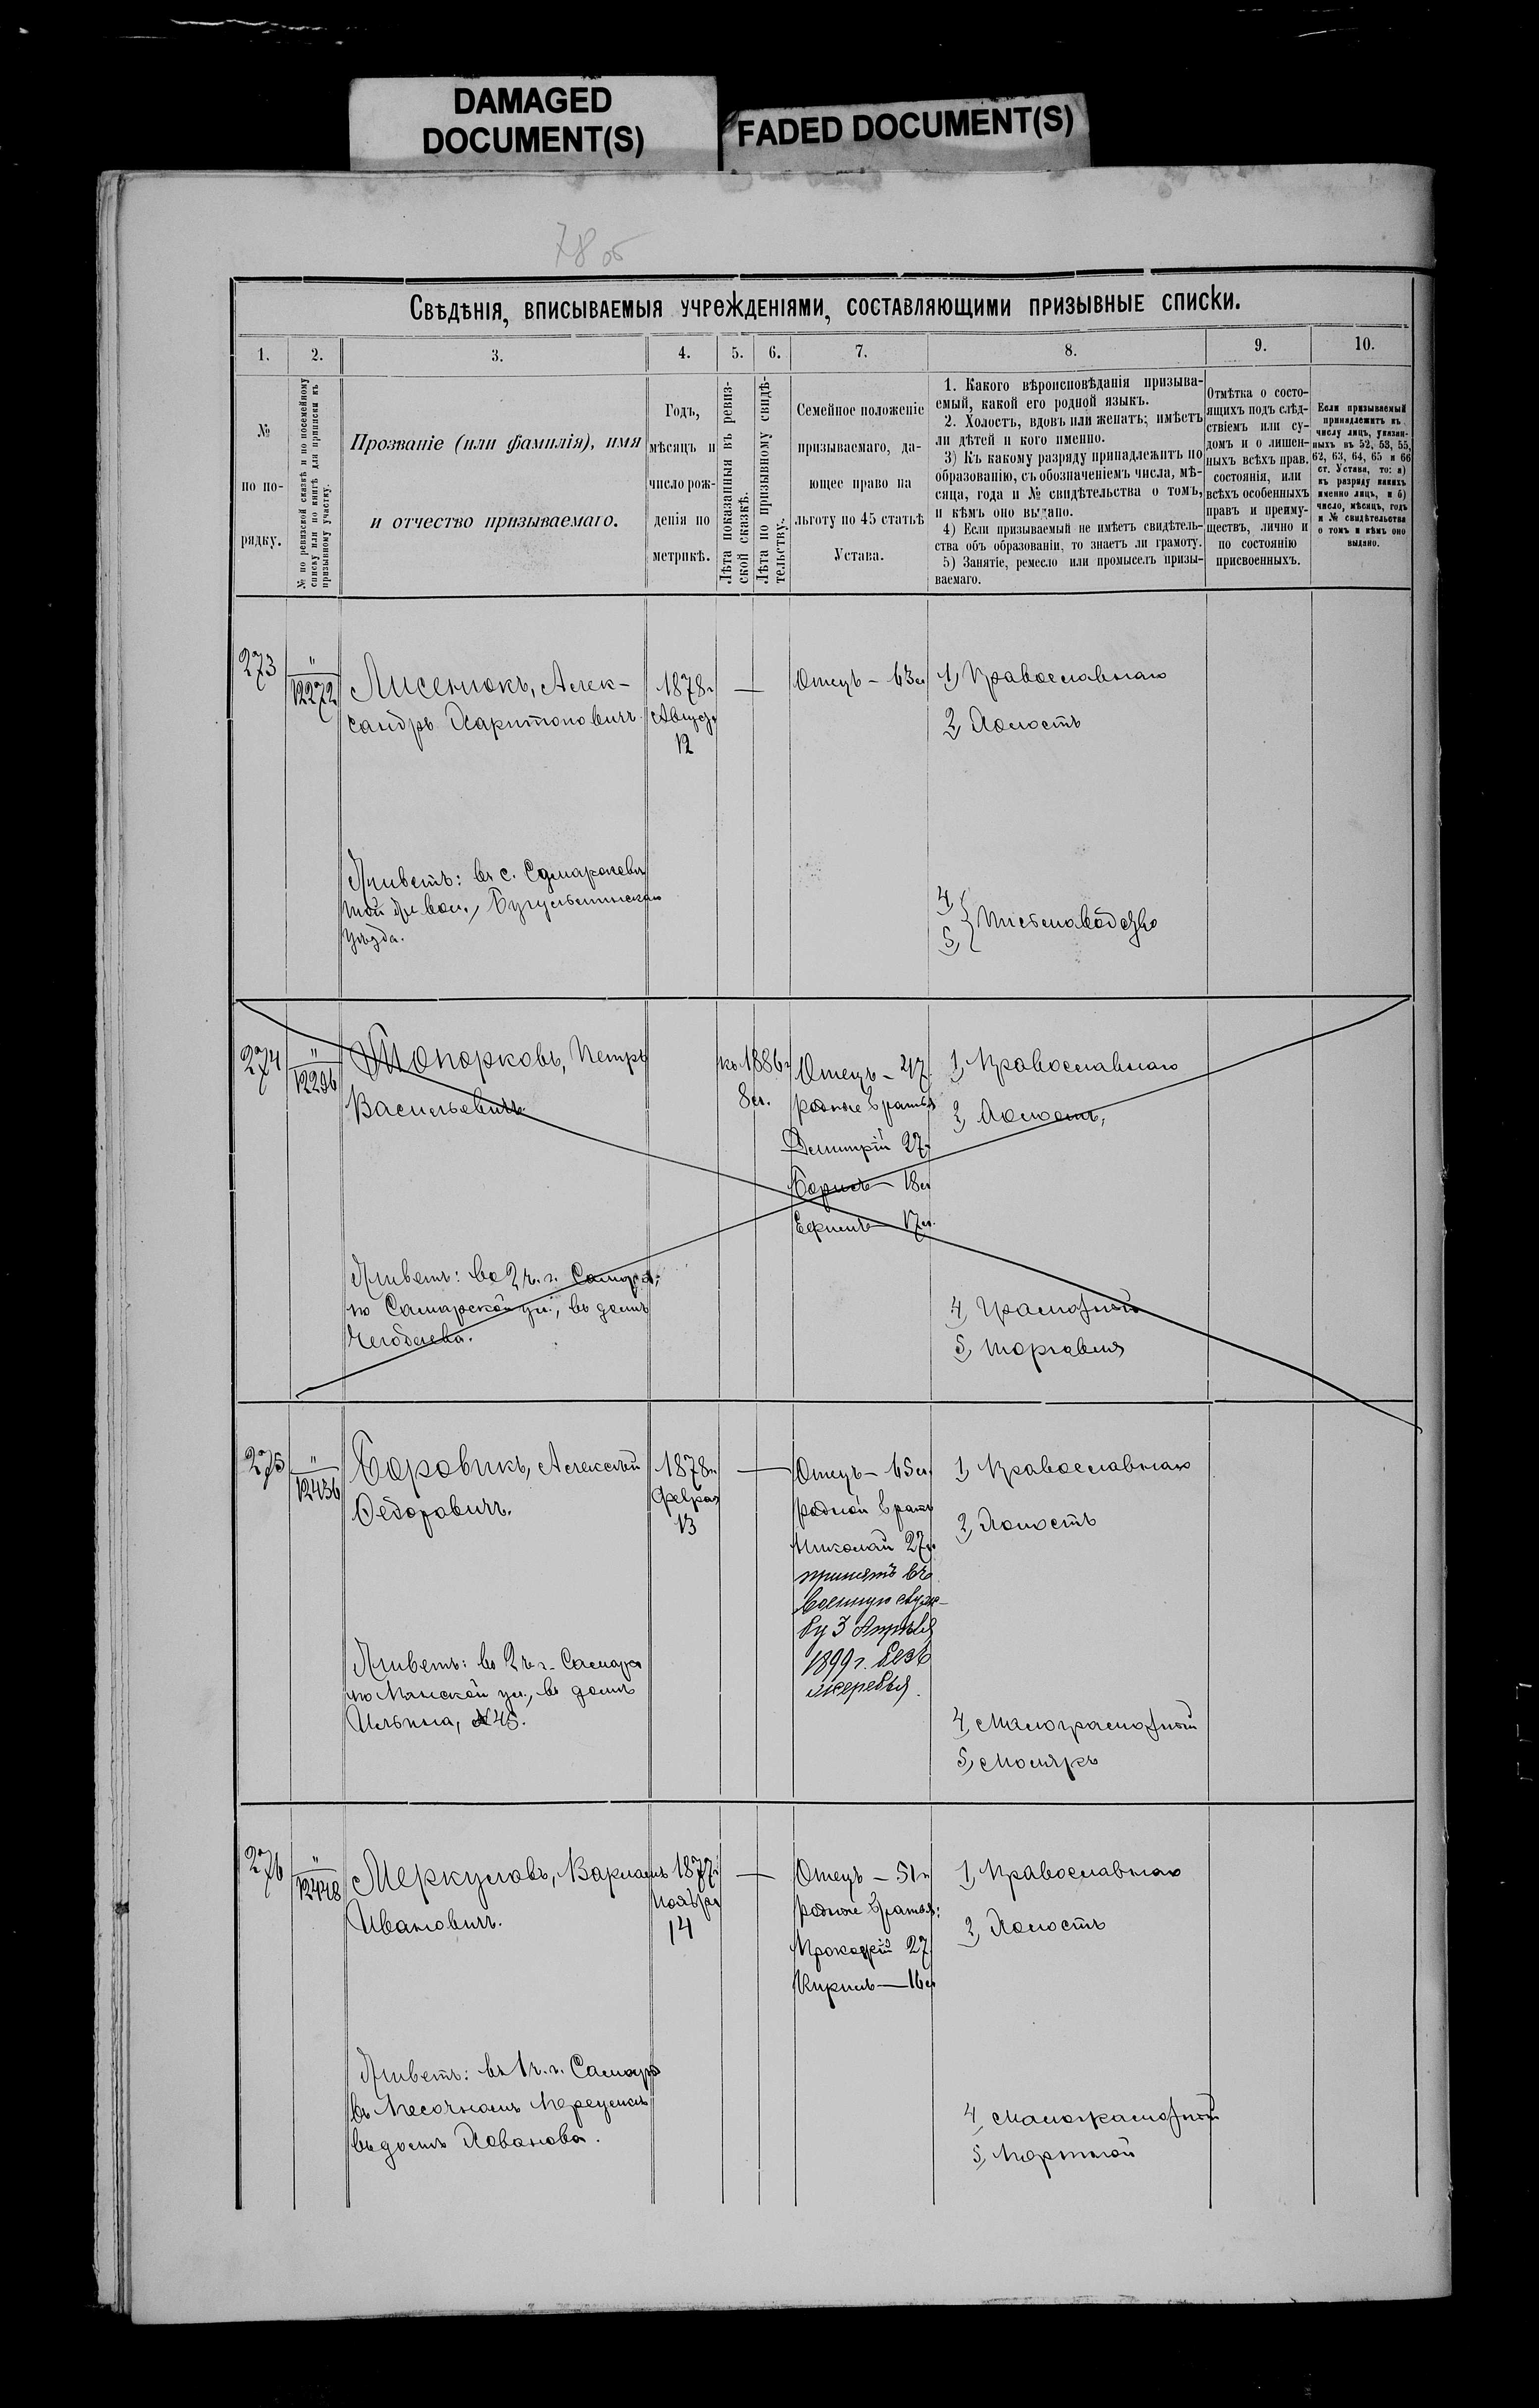 DAMAGED
DOCUMENT(S)
FADED DOCUMENT(S)
78 об
Свѣдѣнія, вписываемыя учрежденіями, составляющими призывные списки.
1.
2.
3.
4.
5.
6.
7.
8.
9.
10.
№
по по-
рядку.
№ по ревизской сказкѣ и по посемейному
списку или по книгѣ для приписки къ
призывному участку.
Прозваніе (или фамилія), имя
и отчество призываемаго.
Годъ,
мѣсяцъ и
число рож-
денія по
метрикѣ.
Лѣта показанныя въ ревиз-
ской сказкѣ.
Лѣта по призывному свидѣ-
тельству.
Семейное положеніе
призываемаго, да-
ющее право на
льготу по 45 статьѣ
Устава.
1. Какого вѣроисповѣданія призыва-
емый, какой его родной языкъ.
2. Холостъ, вдовъ или женатъ; имѣетъ
ли дѣтей и кого именно.
3) Къ какому разряду принадлежитъ по
образованію, съ обозначеніемъ числа, мѣ-
сяца, года и № свидѣтельства о томъ,
и кѣмъ оно выдано.
4) Если призываемый не имѣетъ свидѣтель-
ства объ образованіи, то знаетъ ли грамоту.
5) Занятіе, ремесло или промыселъ призы-
ваемаго.
Отмѣтка о состо-
ящихъ подъ слѣд-
ствіемъ или су-
домъ и о лишен-
ныхъ всѣхъ правъ.
состоянія, или
всѣхъ особенныхъ
правъ и преиму-
ществъ, лично и
по состоянію
присвоенныхъ.
Если призываемый
принадлежитъ къ
числу лицъ, указан-
ныхъ въ 52, 53, 55,
62, 63, 64, 65 и 66
ст. Устава, то: а)
къ разряду какихъ
именно лицъ, и б)
число, мѣсяцъ, годъ
и № свидѣтельства
о томъ и кѣмъ оно
выдано.
273
"
12272
Лисенюкъ, Алек-
сандръ Харитоновичъ
1878 г.
Августа
12
—
Отецъ – 63 л
1) Православнаго
2) Холостъ
Живетъ: въ с.
вол., Бугульминскаго
уѣзда.
4)
5)
Письмоводство
274
"
12296
Топорковъ, Петръ
Васильевичъ
къ 1886 г
8 л.
Отецъ – 47
родные братья
Димитрій 27
Борисъ – 18 л
Ефимъ – 17 л.
1) Православнаго
2) Холостъ,
Живетъ: во 2 ч. г. Самары,
по Самарской ул., въ домѣ
4) Грамотный
5) Торговля
275
"
12436
Боровикъ, Алексѣй
Ѳедоровичъ.
1878 г.
Февраля
13
—
Отецъ – 65 л
родной братъ
Николай 27 л.
принятъ въ
военную служ-
бу 3 Апрѣля
1899 г. безъ
жеребья.
1) Православнаго
2) Холостъ
Живетъ: во 2 ч. г. Самары
по ул., въ домѣ
Ильина, № 45.
4) Малограмотный
5) Маляръ
276
"
12448
Меркуловъ, Варлаамъ
Ивановичъ.
1877 г
Ноября
14
—
Отецъ – 51 г
родные братья:
Прокофій 27
Кирилъ – 16 л
1) Православнаго
2) Холостъ
Живетъ: въ 1 ч. г. Самары
въ Песочномъ переулкѣ
въ домѣ Хованова.
4) Малограмотный
5) Портной